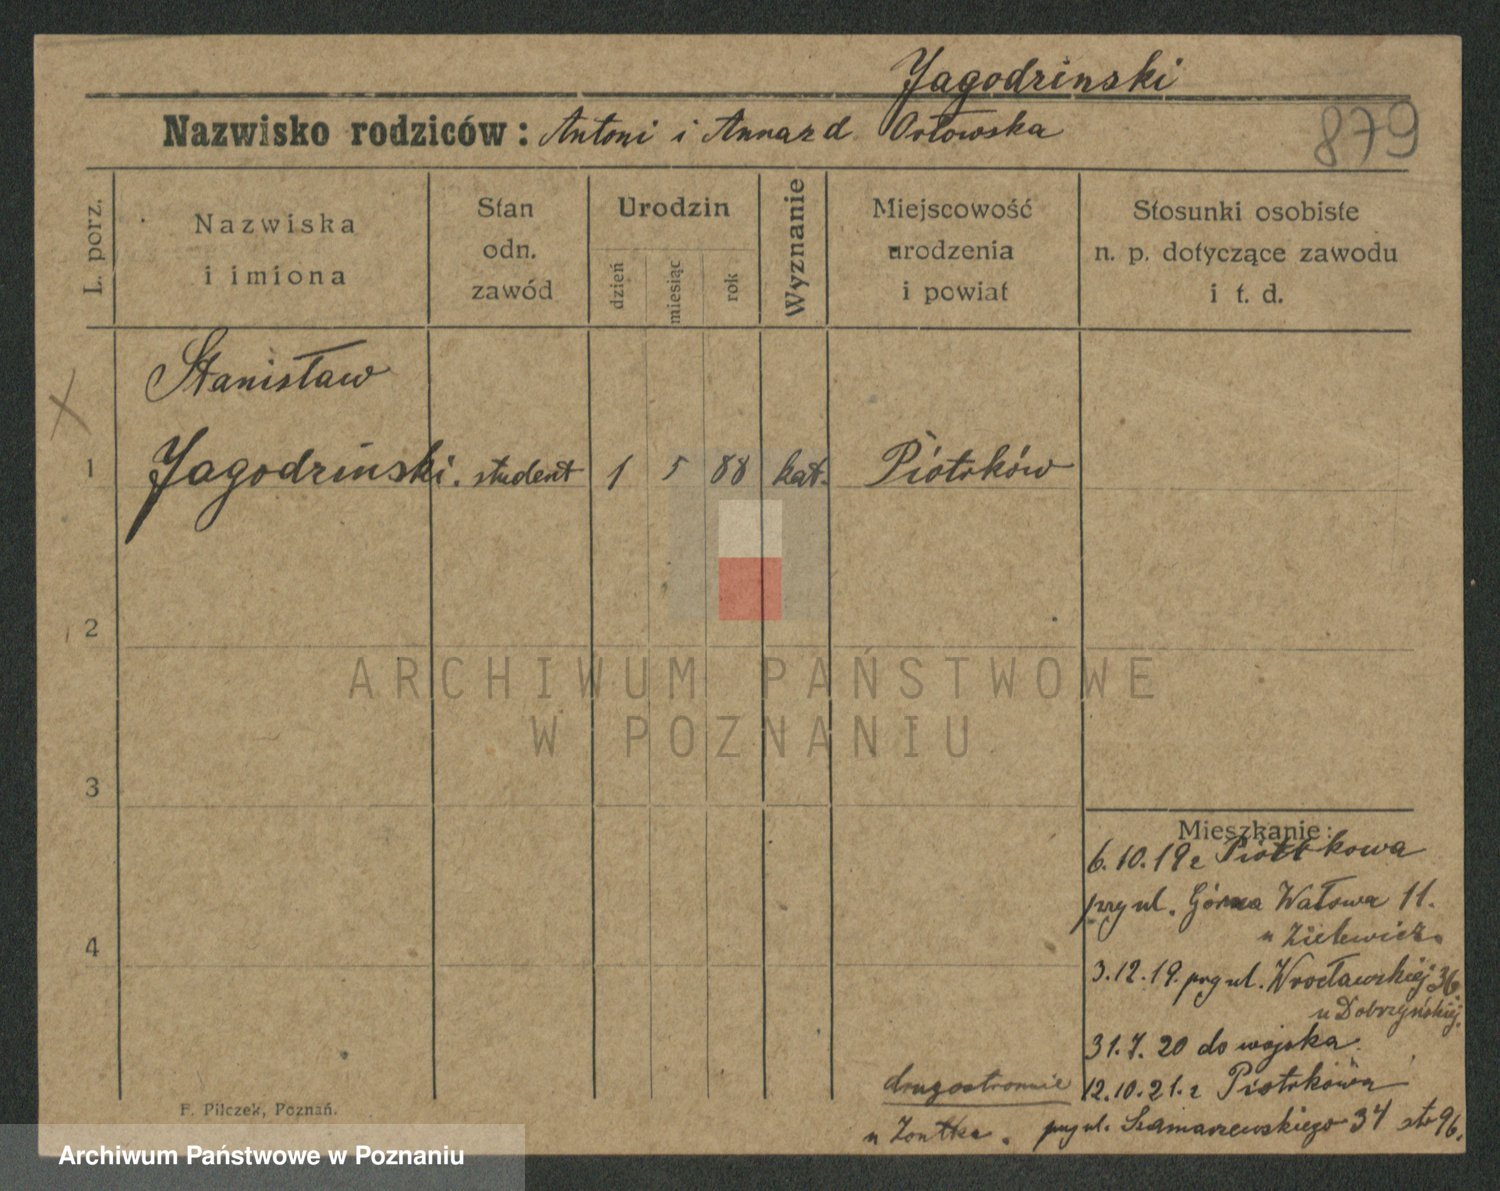 Jagodzinski
Nazwisko rodziców: Antoni i Anna z d Orłowska
879
L. porz.
Nazwiska
i imiona
Stan
odn.
zawód
Urodzin
dzień
miesiąc
rok
Wyznanie
Miejscowość
urodzenia
i powiat
Stosunki osobiste
n. p. dotyczące zawodu
i t. d.
Stanisław
1 Jagodzinski. student 1 5 88 kat. Piotrków
2
ARCHIWUM PAŃSTWOWE
W POZNANIU
3
Mieszkanie:
6.10.19 z Piotrkowa
przy ul. Górna Wałowa 11.
u Zielewicz.
4
3.12.19. przy ul. Wrocławskiej 36
u Dobrzyńskiej.
31.7.20 do wojska.
drugostronnie 12.10.21. z Piotrkowa
u Zontka. przy ul. Szamarzewskiego 34 str 96.
F. Pilczek, Poznań.
Archiwum Państwowe w Poznaniu